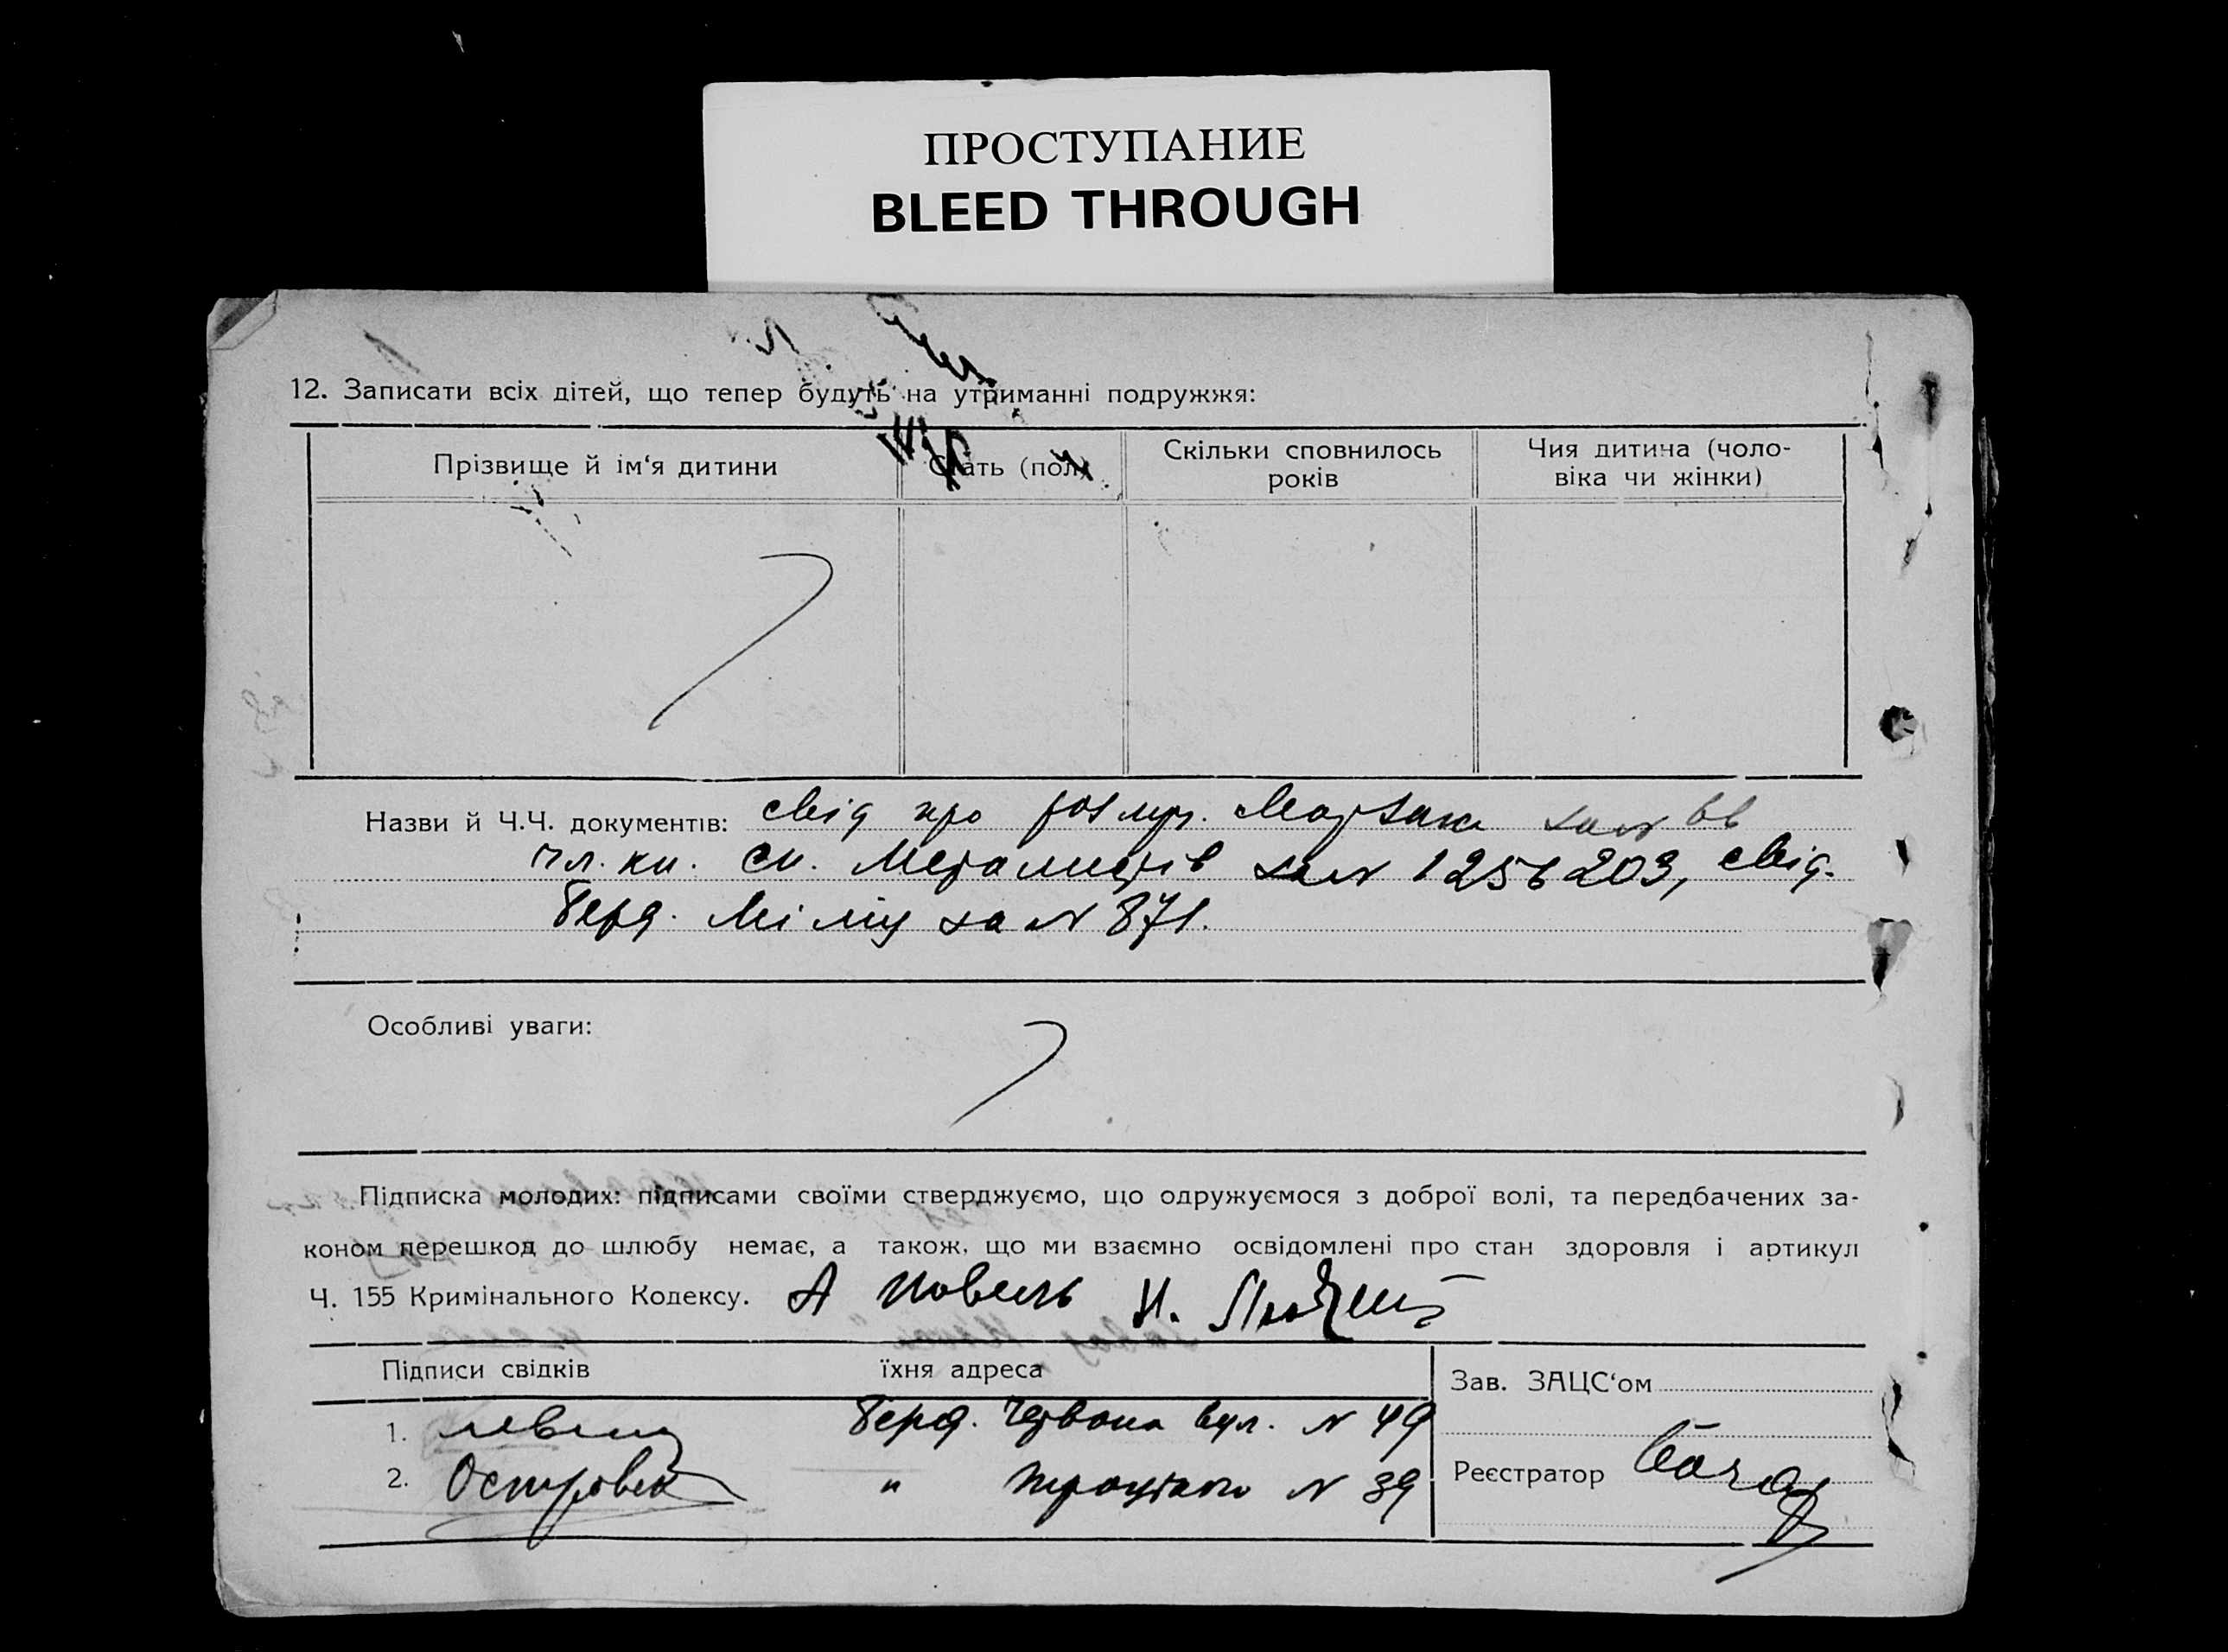 ПРОСТУПАНИЕ
BLEED THROUGH
12. Записати всіх дітей, що тепер будуть на утриманні подружжя:
Прізвище й ім‘я дитини
Стать (пол)
Скільки сповнилось
років
Чия дитина (чоло-
віка чи жінки)
Назви й Ч.Ч. документів: свід про за N 66
чл. кн. сп. Металистів за N 1256203, свід.
Берд. Міліц за N 871.
Особливі уваги:
Підписка молодих: підписами своїми стверджуємо, що одружуємося з доброї волі, та передбачених за-
коном перешкод до шлюбу немає, а також, що ми взаємно освідомлені про стан здоровля і артикул
Ч. 155 Кримінального Кодексу. А Н.
Підписи свідків
їхня адреса
Зав. ЗАЦС‘ом
1. Берд. Червона вул. N 49
2. Островск " Троцького N 39
Реєстратор